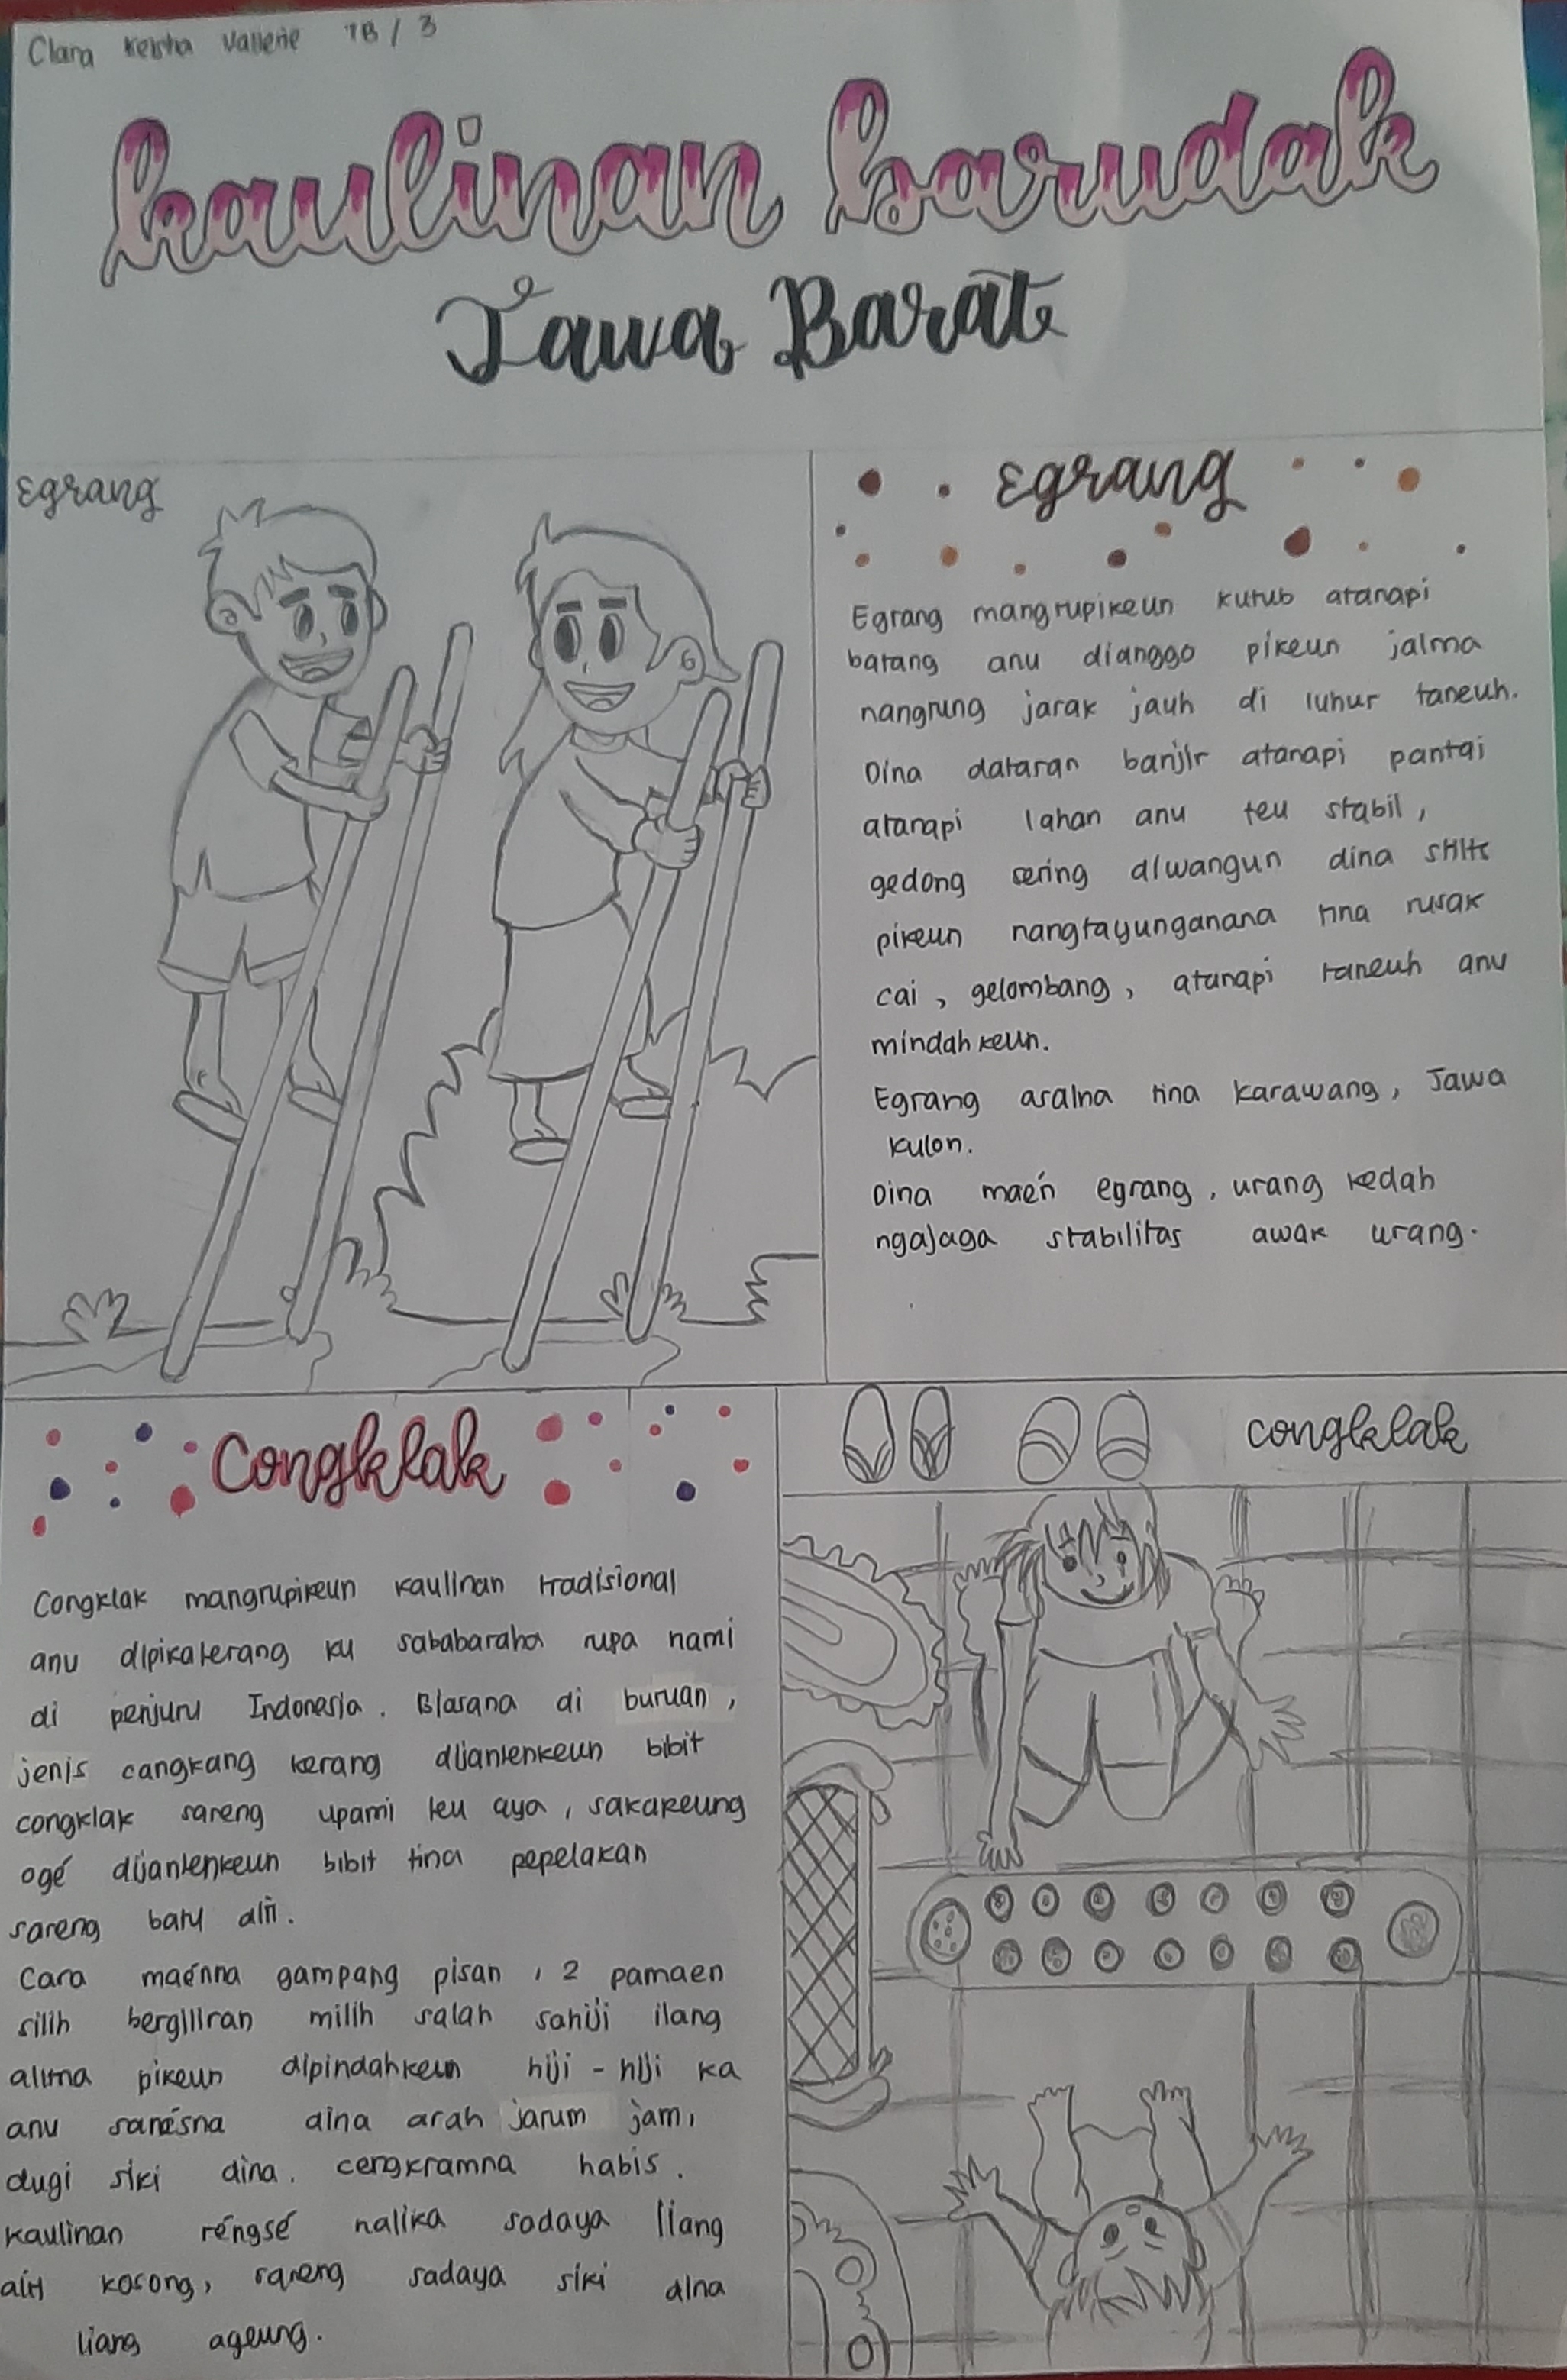 Clara Keisha Vallerie 7B / 3
kaulinan barudak
Jawa Barat
Egrang
Egrang
Egrang mangrupikeun kutub atanapi
batang anu dianggo pikeun jalma
nangtung jarak jauh di luhur taneuh.
Dina dataran banjir atanapi pantai
atanapi lahan anu teu stabil,
gedong sering diwangun dina stilts
pikeun nangtayunganana tina rusak
cai, gelombang, atanapi taneuh anu
mindahkeun.
Egrang asalna tina Karawang, Jawa
Kulon.
Dina maén egrang, urang kedah
ngajaga stabilitas awak urang.
Congklak
Congklak mangrupikeun kaulinan tradisional
anu dipikaterang ku sababaraha rupa nami
di penjuru Indonesia. Biasana di buruan,
jenis cangkang kerang dijantenkeun bibit
congklak sareng upami teu aya, sakakeung
ogé dijantenkeun bibit tina pepelakan
sareng batu alit.
Cara maénna gampang pisan, 2 pamaen
silih bergiliran milih salah sahiji liang
alitna pikeun dipindahkeun hiji-hiji ka
anu sanésna dina arah jarum jam,
dugi siki dina. cengkramna habis.
Kaulinan réngsé nalika sadaya liang
alit kosong, sareng sadaya siki dina
liang ageung.
congklak